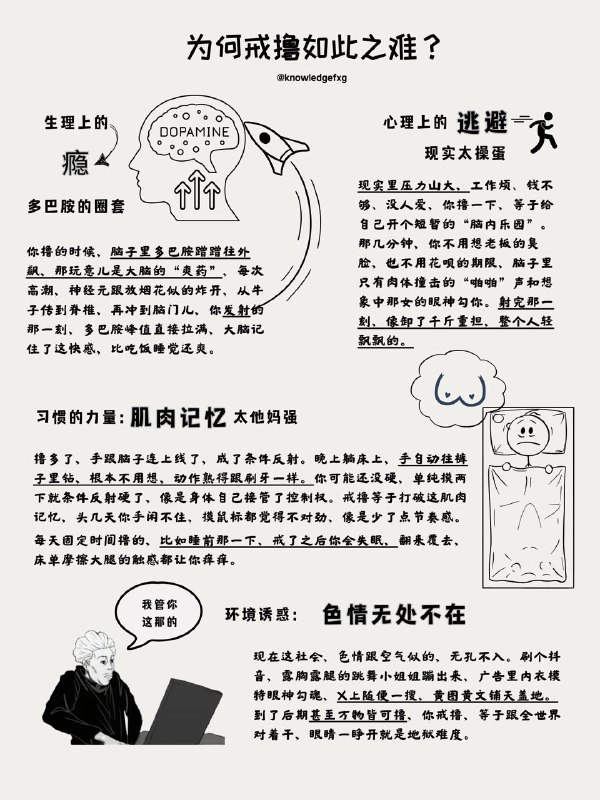 为何戒撸如此之难？
@knowledgefxg
生理上的
瘾
多巴胺的圈套
DOPAMINE
你撸的时候、脑子里多巴胺蹭蹭往外
飙、那玩意儿是大脑的“爽药”，每次
高潮、神经元跟放烟花似的炸开、从牛
子传到脊椎、再冲到脑门儿、你发射的
那一刻、多巴胺峰值直接拉满、大脑记
住了这快感、比吃饭睡觉还爽。
心理上的 逃避
现实太操蛋
现实里压力山大、工作烦、钱不
够、没人爱、你撸一下、等于给
自己开个短暂的“脑内乐园”。
那几分钟、你不用想老板的臭
脸、也不用花呗的期限、脑子里
只有肉体撞击的“啪啪”声和想
象中那女的眼神勾你。射完那一
刻、像卸了千斤重担、整个人轻
飘飘的。
习惯的力量：肌肉记忆 太他妈强
撸多了、手跟脑子连上线了、成了条件反射。晚上躺床上、手自动往裤
子里钻、根本不用想、动作熟得跟刷牙一样。你可能还没硬、单纯摸两
下就条件反射硬了、像是身体自己接管了控制权。戒撸等于打破这肌肉
记忆、头几天你手闲不住、摸鼠标都觉得不对劲、像是少了点节奏感。
每天固定时间撸的、比如睡前那一下、戒了之后你会失眠、翻来覆去、
床单摩擦大腿的触感都让你痒痒。
我管你
这那的
环境诱惑： 色情无处不在
现在这社会、色情跟空气似的、无孔不入。刷个抖
音、露胸露腿的跳舞小姐姐蹦出来、广告里内衣模
特眼神勾魂、X上随便一搜、黄图黄文铺天盖地。
到了后期甚至万物皆可撸、你戒撸、等于跟全世界
对着干、眼睛一睁开就是地狱难度。